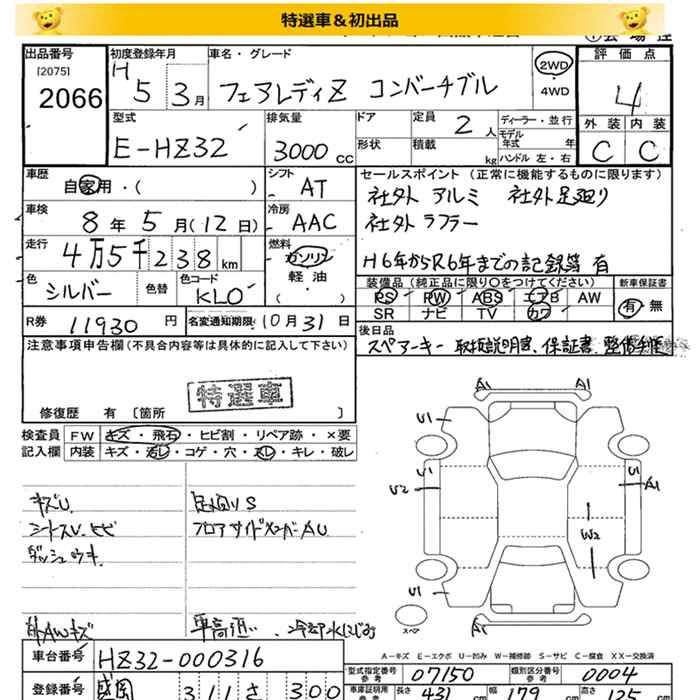 特選車＆初出品
出品番号 初度登録年月 車名・グレード 評価点
[2075] H 5 3月 フェアレディZ コンバーチブル 2WD ・ 4WD 4
2066
型式 排気量 ドア 定員 2人 ディーラー・並行 外装 内装
E-HZ32 3000CC 形状 積載 kg モデル年式 年 C C
ハンドル 左・右
車歴 自家用・( ) シフト AT セールスポイント（正常に機能するものに限ります）
社外 アルミ 社外足廻り
車検 8年 5月(12日) 冷房 AAC 社外 マフラー
走行 4万5千238km 燃料 ガソリン 軽油 ・ ( ) H6年からR6年までの記録簿 有
色 シルバー 色替 色コード KL0 装備品（純正品に限り○をつけてください） 新車保証書
PS PW ABS エアB AW 有・無
SR ナビ TV カワ
R券 11930円 名変通知期限 10月31日 後日品
スペアーキー 取扱説明書、保証書、整備手帳
注意事項申告欄（不具合内容等は具体的に記入して下さい）
特選車
修復歴 有〔箇所 〕
検査員記入欄 FW キズ・飛石・ヒビ割・リペア跡・×要
内装 キズ・汚レ・コゲ・穴・スレ・キレ・破レ
A1 A1
U1
U1 U1
U2 A1
W2
U1
スペア A1
キズU 足廻りS
シートスレ、ヒビ フロアサイドメンバーAU
ダッシュウキ
外AWキズ 車高近 冷却水にじみ
A－キズ E－エクボ U－凹み W－補修跡 S－サビ C－腐食 XX－交換済
車台番号 HZ32-000316 型式指定番号 参考 07150 類別区分番号 参考 0004
登録番号 盛岡 311 さ 300 車庫証明用 参考 長さ 431cm 幅 179cm 高さ 125cm